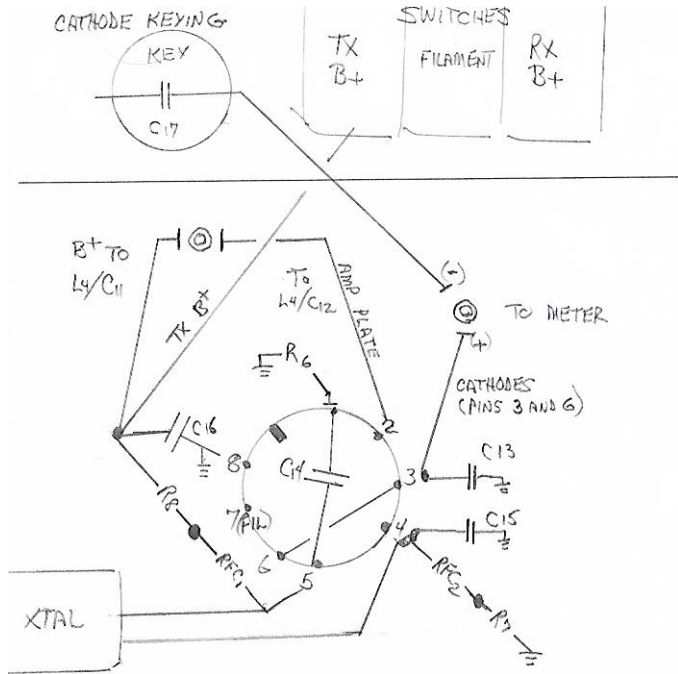 CATHODE KEYING
KEY
C17
SWITCHES
TX
B+
FILAMENT
RX
B+
B+ TO
L4/C11
TX B+
TO
L4/C12
AMP PLATE
(-)
TO METER
(+)
CATHODES
(PINS 3 AND 6)
R6
1
2
C16
8
C14
3
C13
R8
7(FIL)
4
C15
6
5
RFC1
RFC2
R7
XTAL